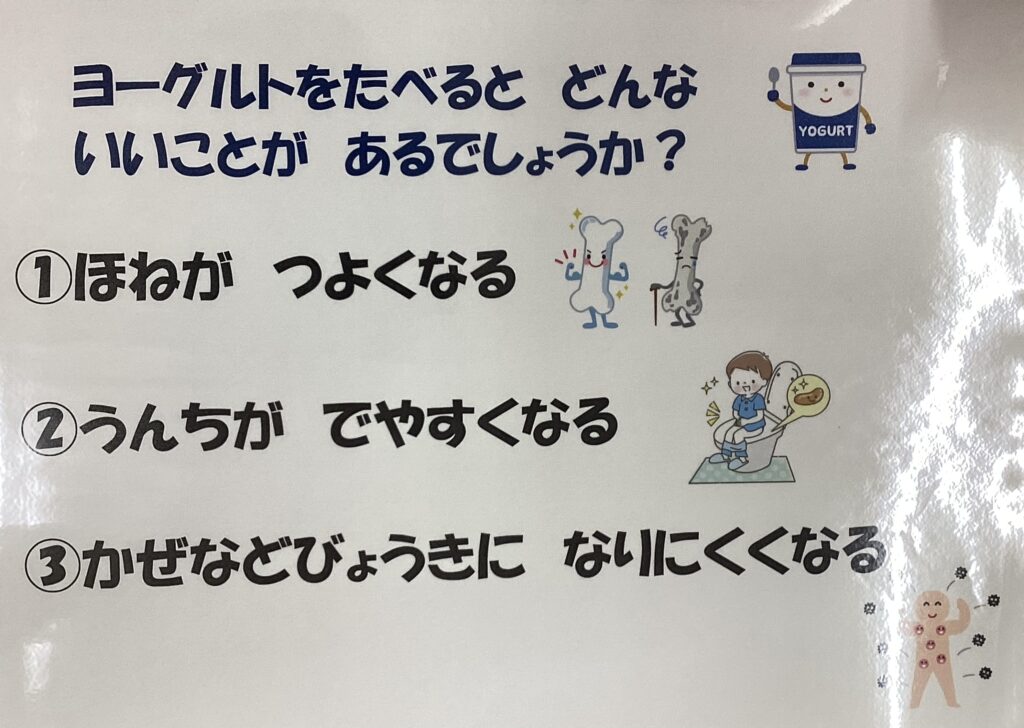 ヨーグルトをたべると どんな
いいことが あるでしょうか？
YOGURT
①ほねが つよくなる
②うんちが でやすくなる
③かぜなどびょうきに なりにくくなる